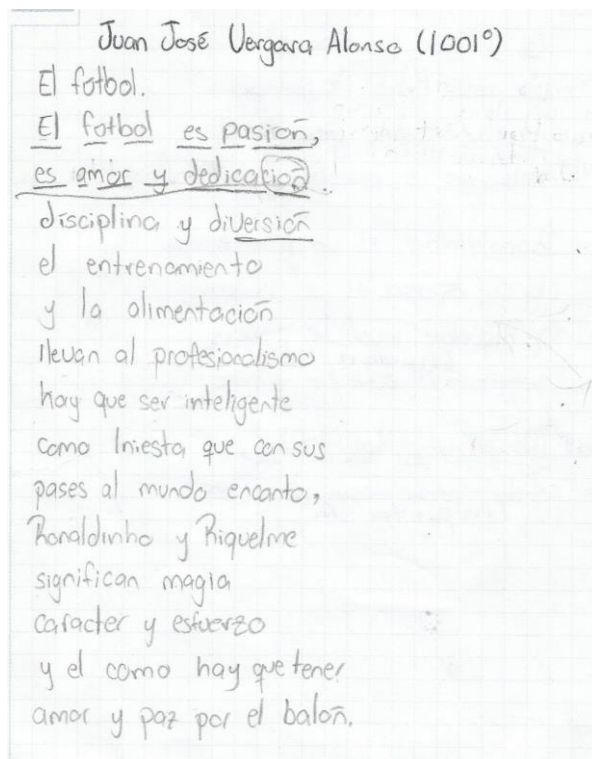 Juan José Vergara Alonso (1001°)
El fotbol.
El fotbol es pasión,
es amor y dedicación.
disciplina y diversión
el entrenamiento
y la alimentación
llevan al profesionalismo
hay que ser inteligente
como Iniesta que con sus
pases al mundo encanto,
Ronaldinho y Riquelme
significan magia
caracter y esfuerzo
y el como hay que tener
amor y paz por el balón.